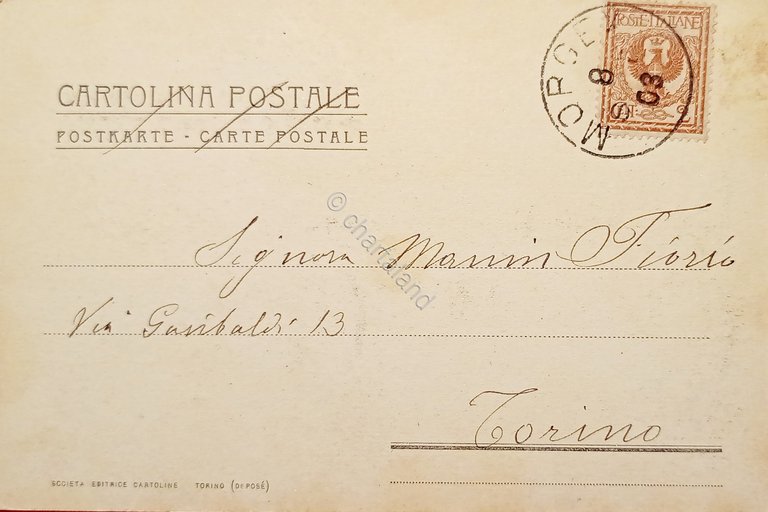 CARTOLINA POSTALE
POSTKARTE - CARTE POSTALE
POSTE·ITALIANE
MORGEX
8
03
2
© chartaland
Signora Mannin Fiorio
Via Garibaldi 13
Torino
SOCIETA EDITRICE CARTOLINE TORINO (DEPOSÉ)